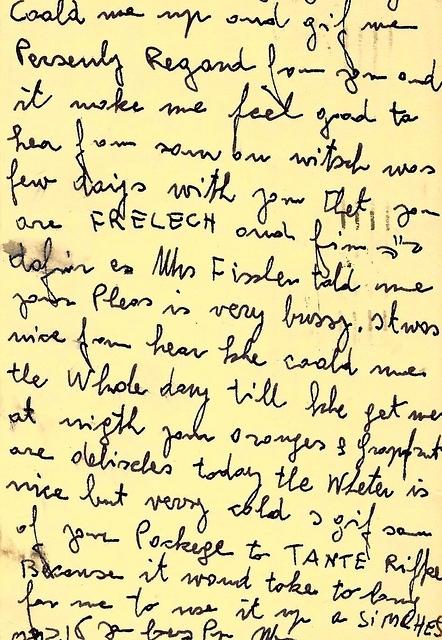 Coald me up and gif me
Persenly Regard from you and
it make me feel good to
hea from som on witsch was
few days with you thet you
are FRELECH and from
as Mrs Fissler told me
your Pleas is very bussy. it was
nice from hear she coald me
the Whole day till she get me
at nigth your oranges & grapfrut
are delisches today the Wheter is
nice but very cold I gif som
of your Packege to TANTE Riffke
Because it woud take to long
for me to use it up a SIMCHES